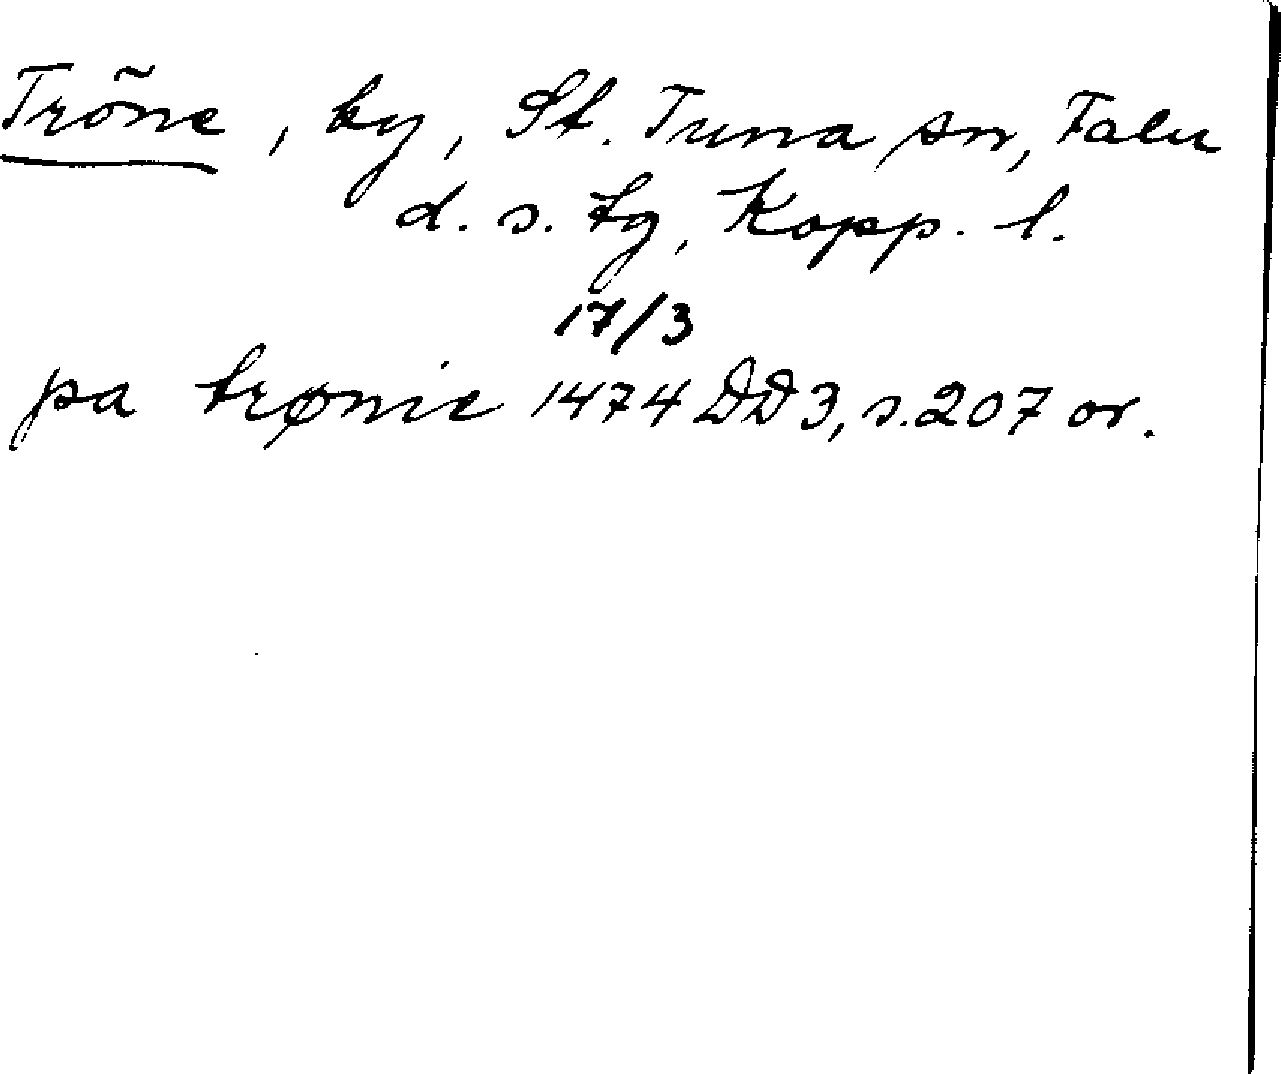 Tröne, by, St. Tuna sn, Falu
d. s. tg, Kopp. l.
17/3
pa trønie 1474 DD3, s.207 or.